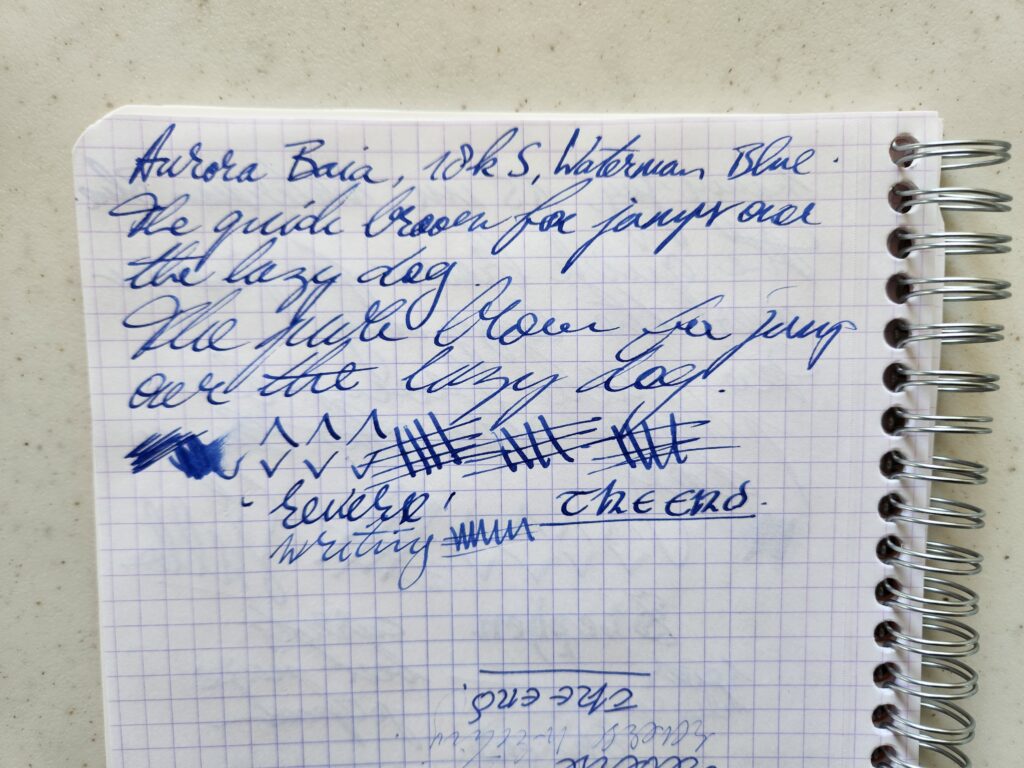 Aurora Baia, 18k S, Waterman Blue.
The quick brown fox jumps over
the lazy dog.
The quick brown fox jump
over the lazy dog.
reverse
writing
THE END.
The end.
reverse writing